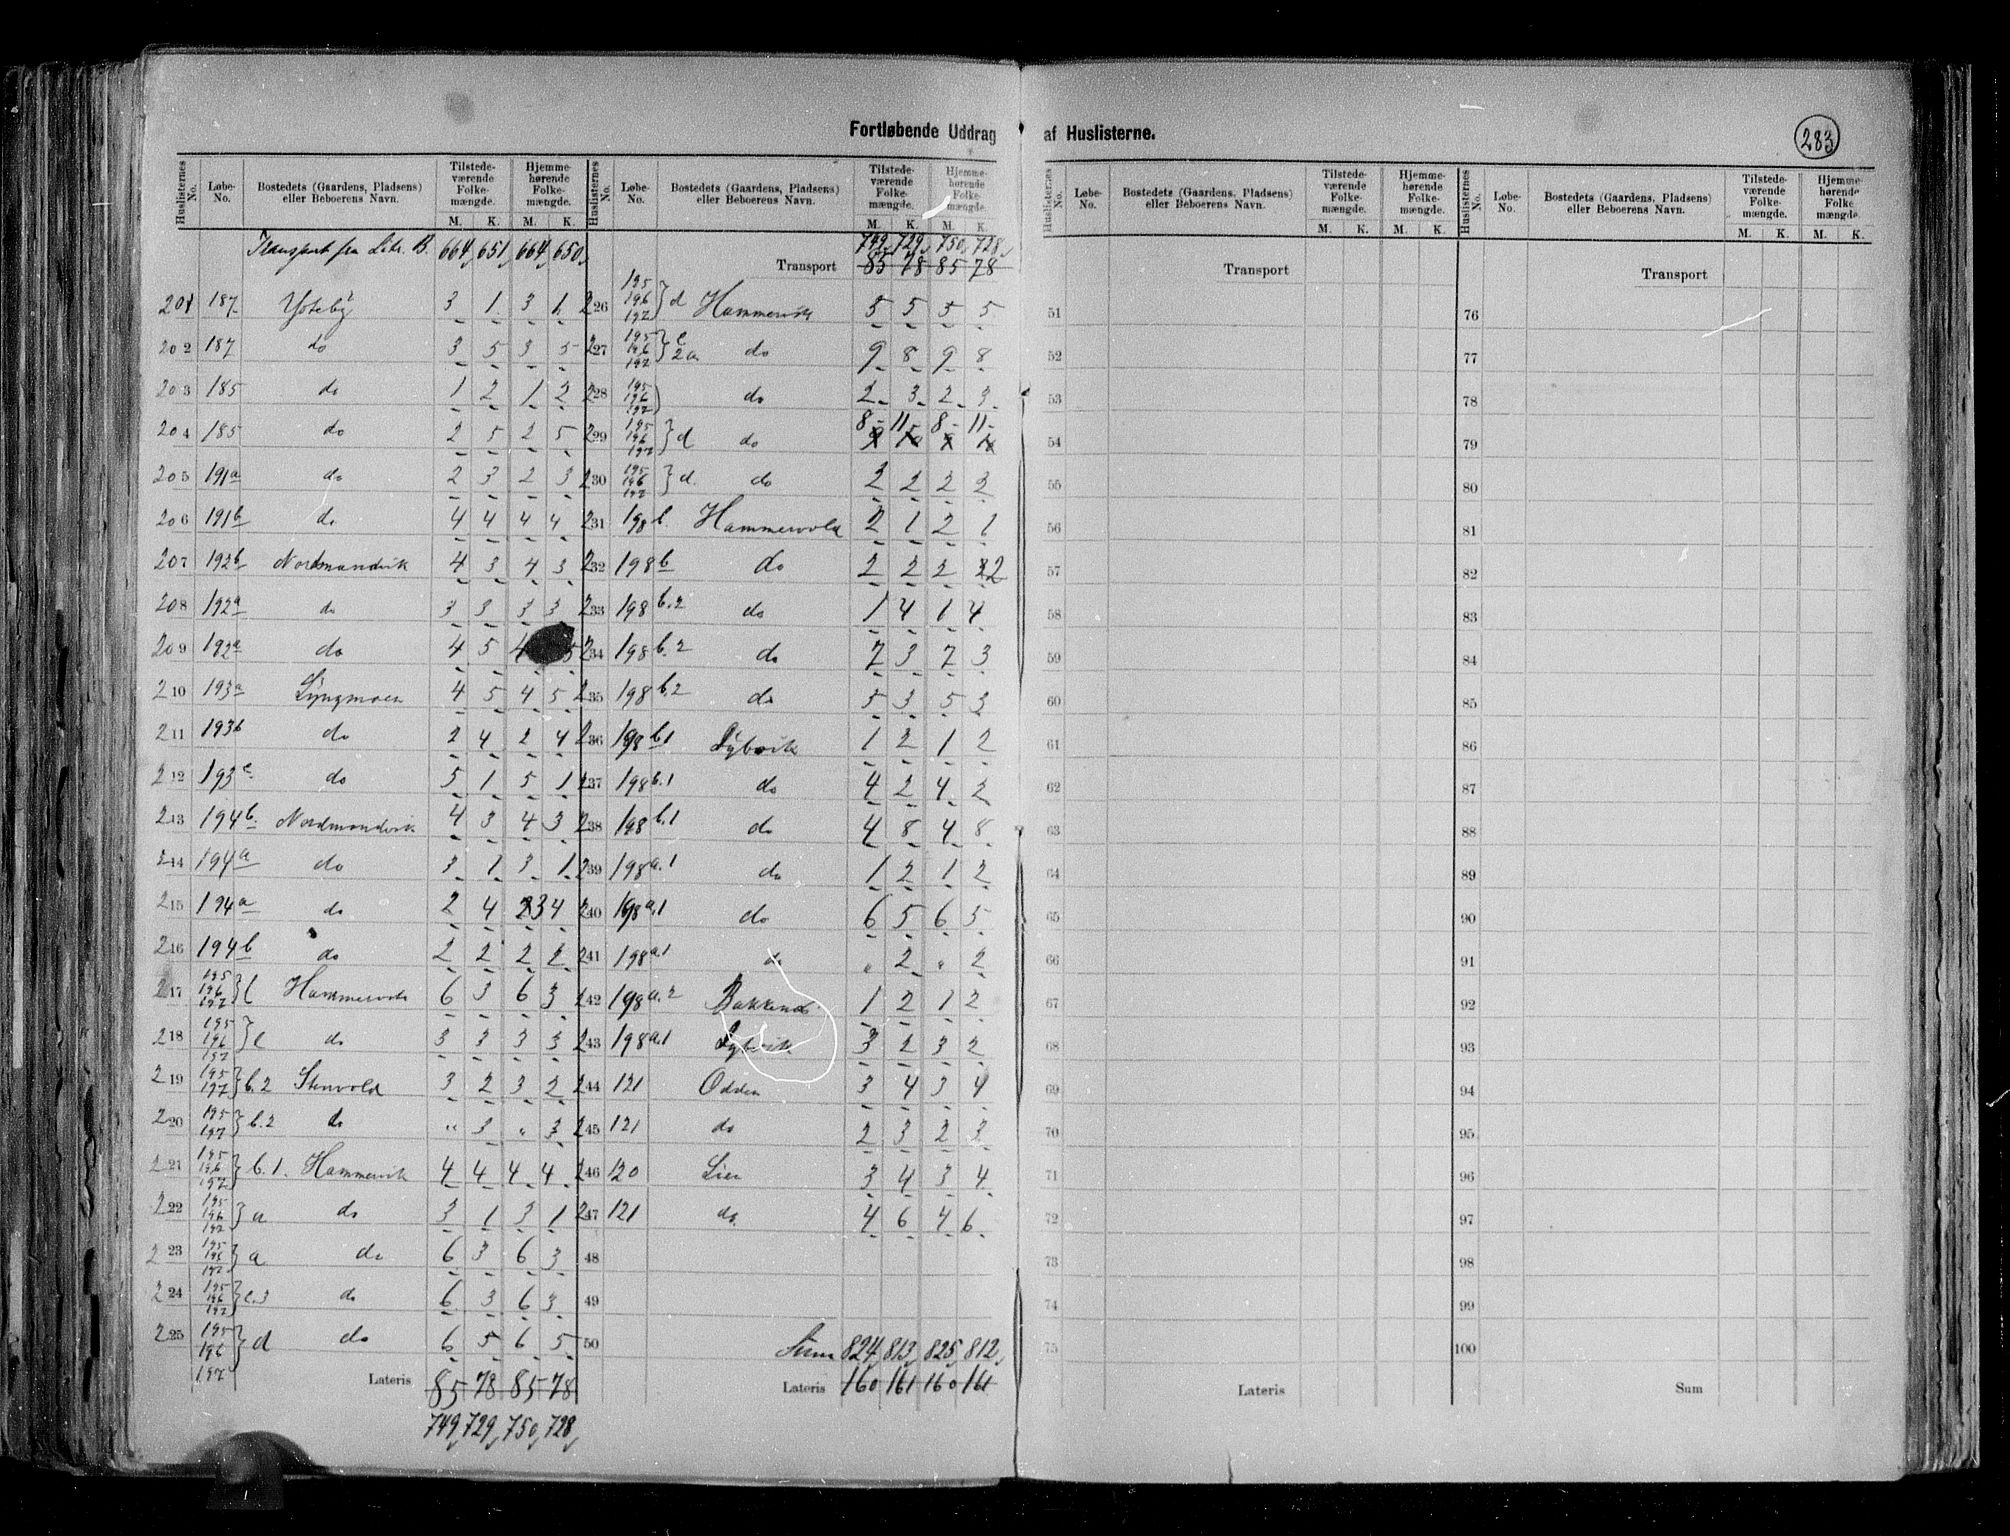 Fortløbende Uddrag af Huslisterne.
283
Huslisternes No. Løbe-No. Bostedets (Gaardens, Pladsens) eller Beboerens Navn. Tilstede-værende Folke-mængde. M. K. Hjemme-hørende Folke-mængde. M. K.
Transport fra Litr. B. 664, 651, 664, 650,
201 187 Ysteby 3 1 3 1
202 187 do 3 5 3 5
203 185 do 1 2 1 2
204 185 do 2 5 2 5
205 191a do 2 3 2 3
206 191b do 4 4 4 4
207 192b Nordmandvik 4 3 4 3
208 192a do 3 3 3 3
209 192a do 4 5 4 5
210 193a Lyngmoen 4 5 4 5
211 193b do 2 4 2 4
212 193c do 5 1 5 1
213 194b. Nordmandvik 4 3 4 3
214 194a do 3 1 3 1
215 194a do 2 4 3 4
216 194b do 2 2 2 2
217 195 196 197 } Hammervik 6 3 6 3
218 195 196 197 } do 3 3 3 3
219 195 197 } b.2 Stenvold 3 2 3 2
220 195 197 } b.2 do " 3 " 3
221 195 196 197 } b.1. Hammervik 4 4 4 4
222 195 196 197 } a do 3 1 3 1
223 195 196 197 } a do 6 3 6 3
224 195 196 197 } do 6 3 6 3
225 195 196 197 } d do 6 5 6 5
Lateris 85 78 85 78
749, 729, 750, 728,
Huslisternes No. Løbe-No. Bostedets (Gaardens, Pladsens) eller Beboerens Navn. Tilstede-værende Folke-mængde. M. K. Hjemme-hørende Folke-mængde. M. K.
749, 729, 750, 728,
Transport 85 78 85 78
226 195 196 197 } d Hammervik 5 5 5 5
227 195 196 197 } 2a do 9 8 9 8
228 195 196 197 ) do 2 3 2 3
229 195 196 197 } d do 8 11 8 11
230 195 196 197 } d. do 2 2 2 2
231 198 b. Hammervold 2 1 2 1
232 198 b do 2 2 2 2
233 198 b.2 do 1 4 1 4
234 198 b.2 do 7 3 7 3
235 198 b.2 do 5 3 5 3
236 198 b.1 Dybvik 1 2 1 2
237 198 b.1 do 4 2 4 2
238 198 b.1 do 4 8 4 8
239 198 a.1 do 1 2 1 2
240 198 a.1 do 6 5 6 5
241 198 a.1 do " 2 " 2
242 198 a.2 1 2 1 2
243 198 a.1 Dybvik 3 2 3 2
244 121 Odden 3 4 3 4
245 121 do 2 3 2 3
246 120 Lien 3 4 3 4
247 121 do. 4 6 4 6
48
49
50 Sum 824, 813, 825, 812,
Lateris 160 161 160 161
Huslisternes No. Løbe-No. Bostedets (Gaardens, Pladsens) eller Beboerens Navn. Tilstede-værende Folke-mængde. M. K. Hjemme-hørende Folke-mængde. M. K.
Transport
51
52
53
54
55
56
57
58
59
60
61
62
63
64
65
66
67
68
69
70
71
72
73
74
75
Lateris
Huslisternes No. Løbe-No. Bostedets (Gaardens, Pladsens) eller Beboerens Navn. Tilstede-værende Folke-mængde. M. K. Hjemme-hørende Folke-mængde. M. K.
Transport
76
77
78
79
80
81
82
83
84
85
86
87
88
89
90
91
92
93
94
95
96
97
98
99
100
Sum